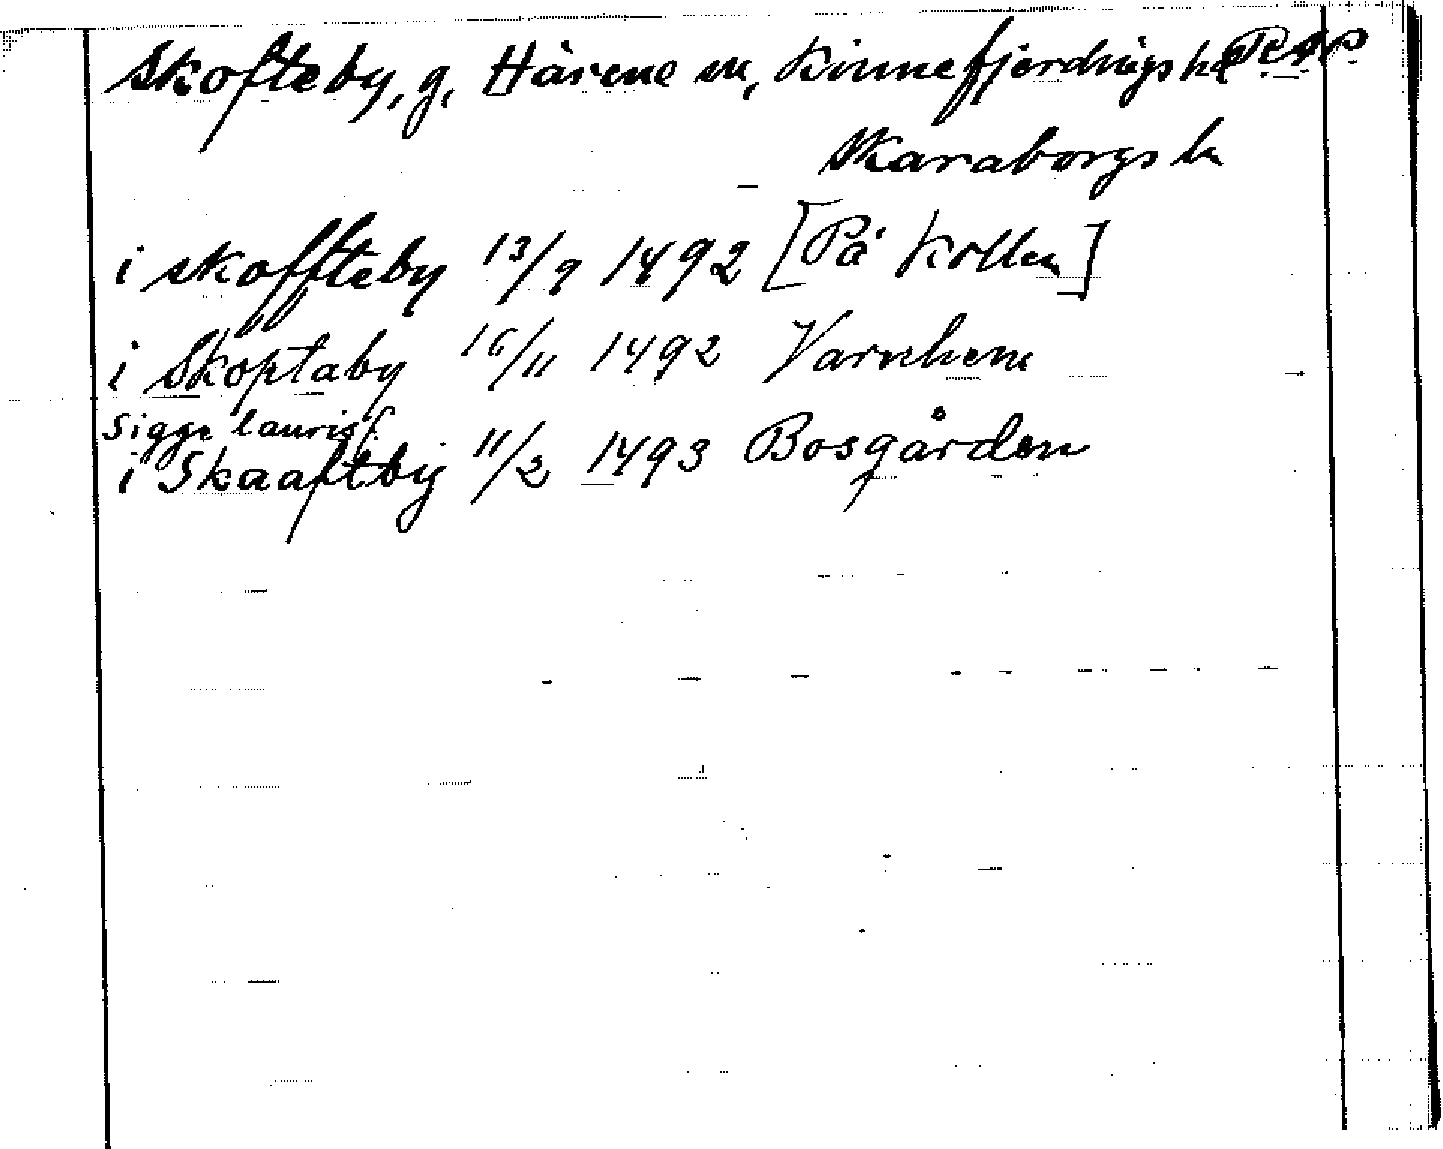 Skofteby, g, Härene sn, Kinnefjerdings hd
Skaraborgs ln
i skoffteby 13/9 1492 [På kollen]
i Skoptaby 16/11 1492 Varnhem
Sigge laurisß
i Skaaftby 11/2 1493 Bosgården